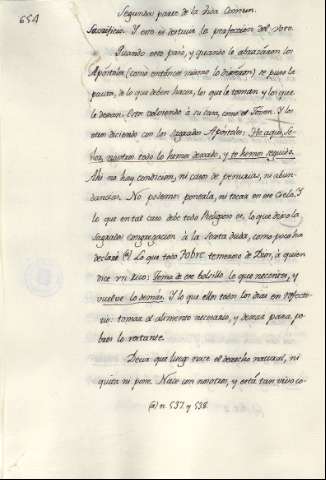 654
Segunda parte de la Vida Comun.
Sacrificio. Y esto es destruir la perfeccion del voto
Quando esto paso, y quando le abrazaron los
Apóstoles (como entónces mismo lo dixeron) se puso la
pauta, de lo que deben hacer, los que le toman y los que
le desean. Esta volviendo à su cara, como el Temen. Y los
otros diciendo con los sagrados Apóstoles: He aqui, Se-
ñor, nosotros todo lo hemos dexado, y te hemos seguido.
Ahi no hay condicion, ni casos de penurias, ni abun-
dancias. No podemos ponerla, ni tocar en ese Cielo. Y
lo que en tal caso debe todo Religioso es, lo que dexo la
Sagrada Congregacion à la Santa duda, como poco ha
declaré (a) Lo que todo Pobre temeroso de Dios, à quien
dice un Rico: Toma de ese bolsillo lo que necesites, y
vuelve lo demás. Y lo que ellos todos los dias en Refecto-
rio: tomar el alimento necesario, y dexar para po-
bres lo restante.
Decia que luego nace el derecho natural, ni
quita ni pone. Nace con nosotros, y está tan vivo co-
(a) n. 537. y 538.